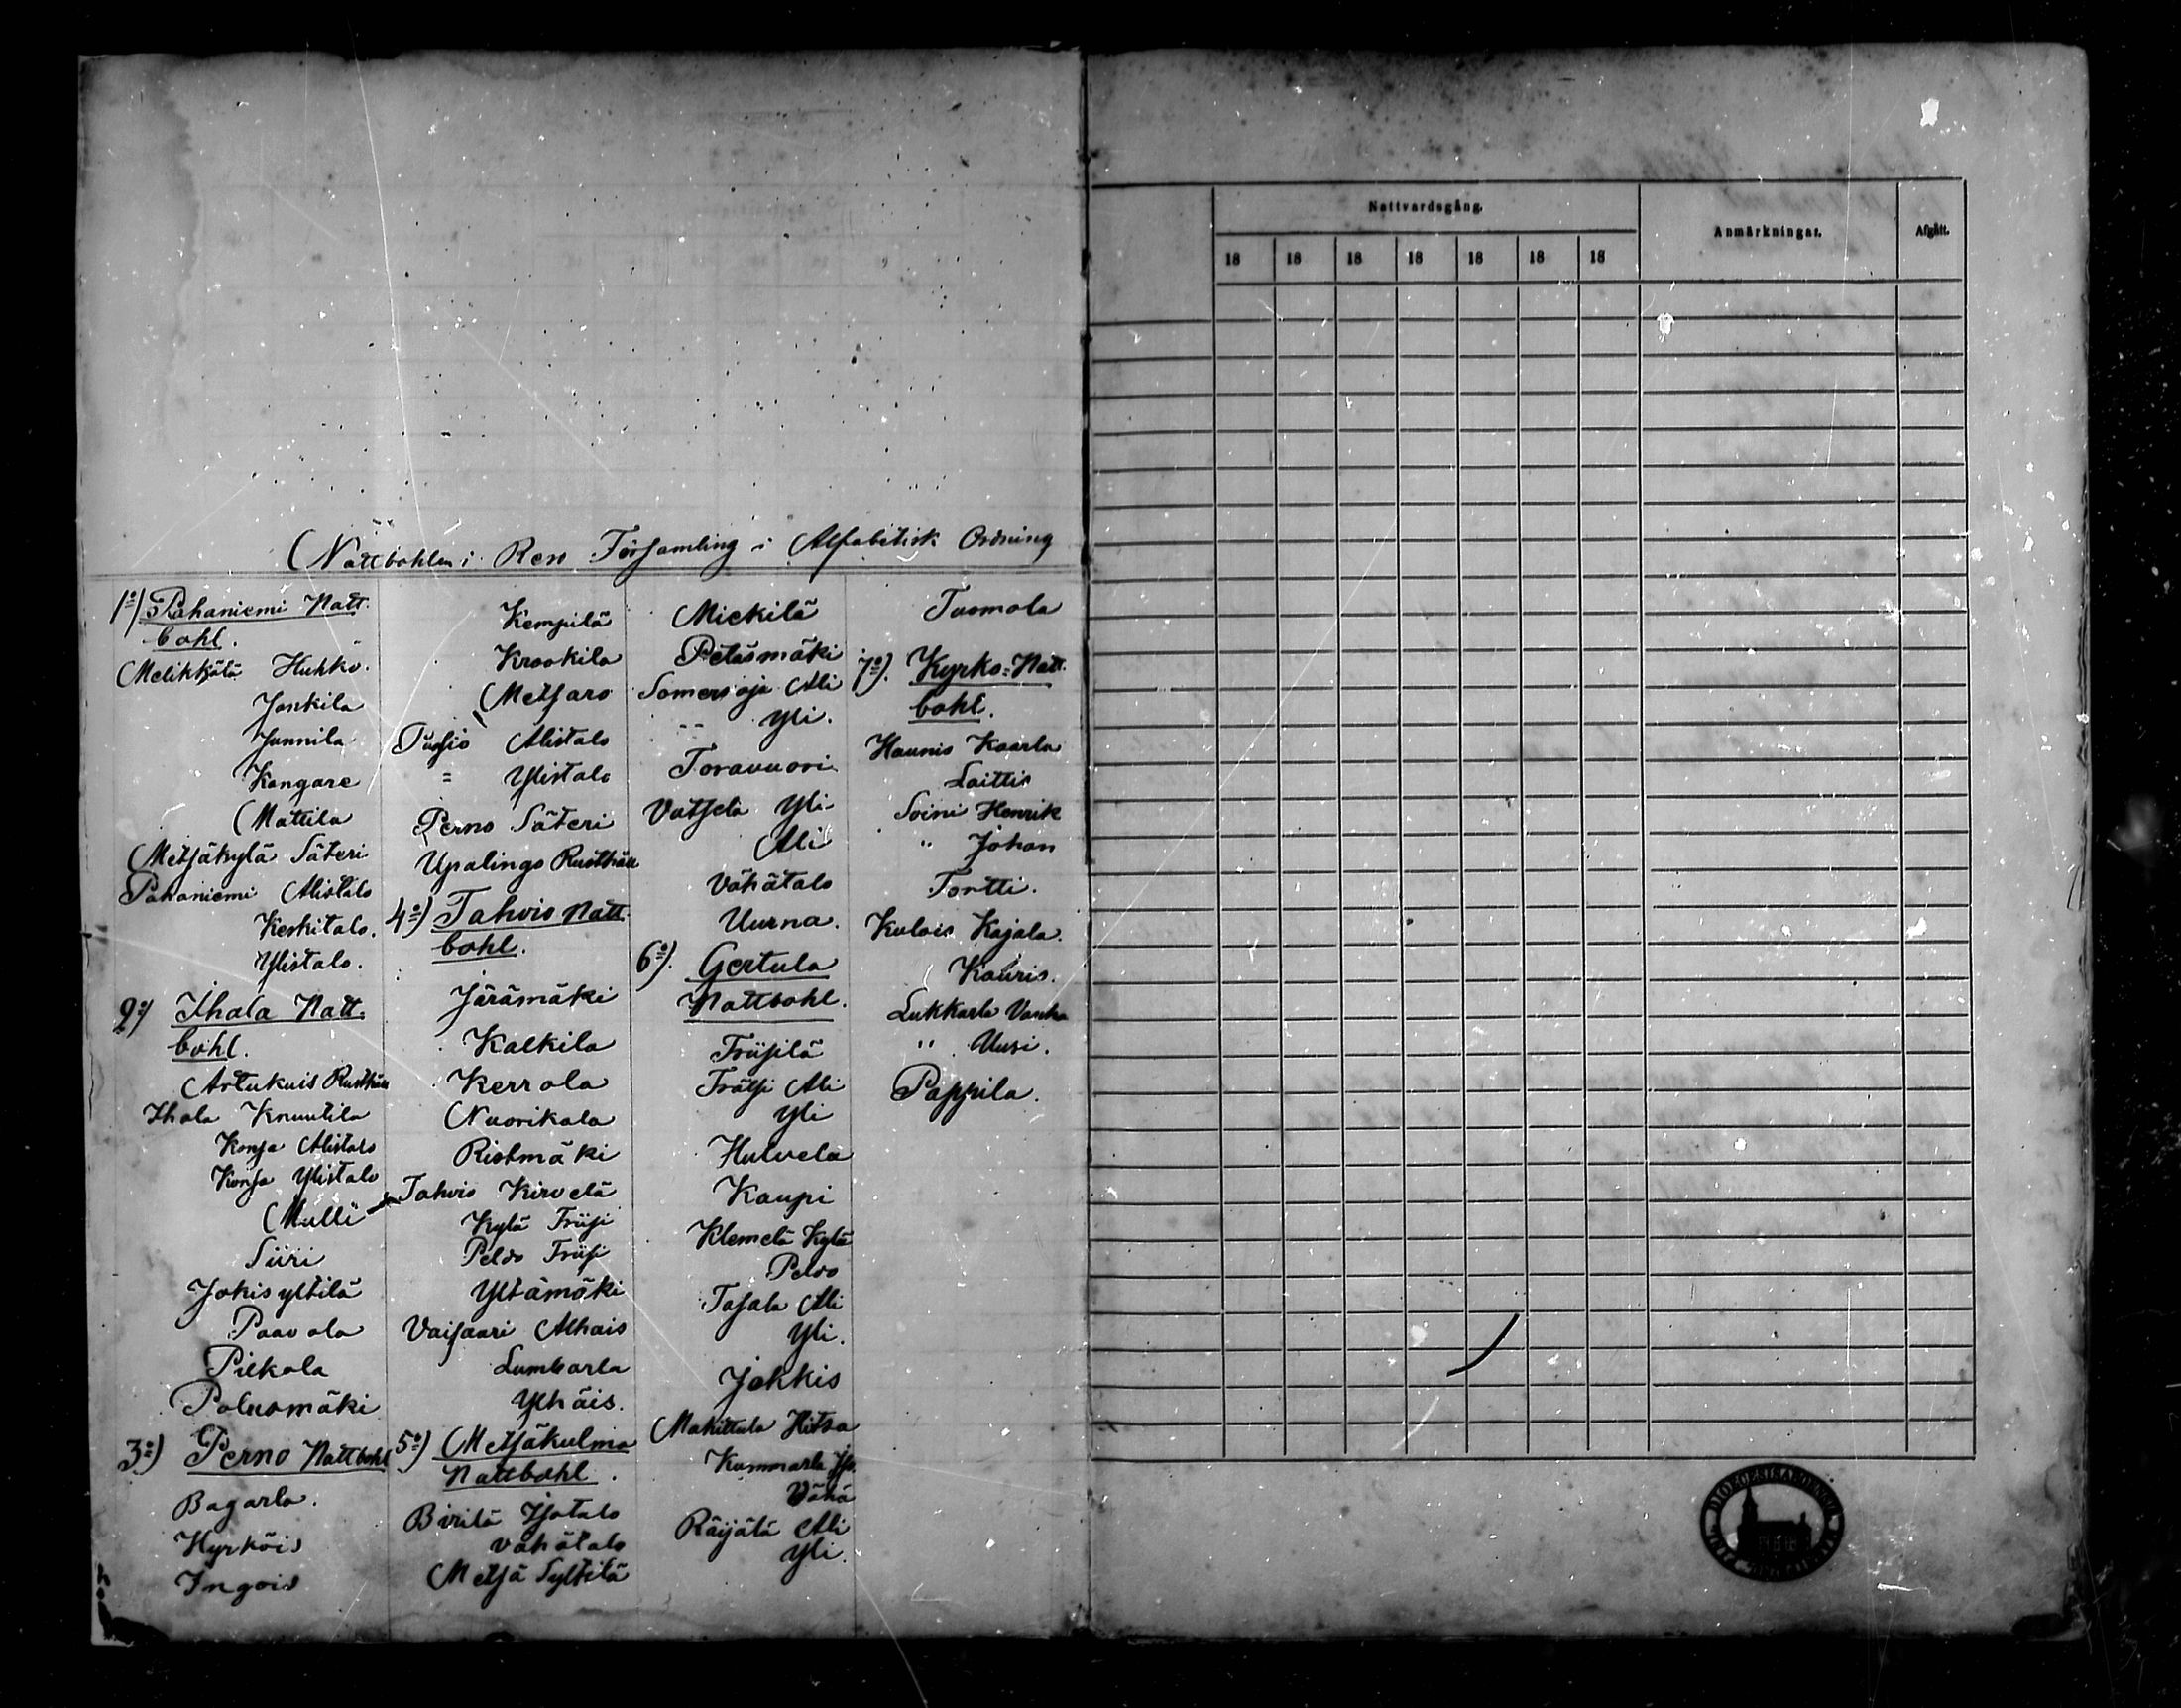 Nattbohlen i Reso Församling i Alfabetisk Ordning
1º) Pahaniemi Natt-
bohl.
Melikkälä Huhko.
Jonkila
Junnila
Kangare
Mattila
Metsäkylä Säteri
Pahaniemi Alistalo
Keskitalo.
Ylistalo.
2º) Ihala Natt-
bohl.
Artukais Rusthåll
Ihala Knuutila
Konsa Alistalo
Konsa Ylistalo
Mulli
Siiri
Jokisyltilä
Paavola
Piekola
Polusmäki
3º) Perno Nattbohl
Bagarla.
Hyrköis
Ingois
Kempilä
Krookila
Metsaro
Pursio Alistalo
" Ylistalo
Perno Säteri
Upalingo Rusthåll
4º) Tahvio Natt-
bohl.
Järämäki
Kalkila
Kerrola
Nuorikala
Ristimäki
Tahvio Kirvelä
Kylä Friisi
Peldo Friisi
Yltämäki
Vaisaari Alhais
Lumbarla
Ylhäis.
5º) Metsäkulma
Nattbohl.
Virilä Isotalo
Vähätalo
Metsä Syltilä
Mickilä
Petäsmäki
Somersoja Ali
" Yli.
Toravuori
Vatsela Yli
Ali
Vähätalo
Uurna.
6º). Gertula
Nattbohl.
Friisilä
Frätsi Ali
Yli
Hulvela
Kaupi
Klemelä Kylä
Peldo
Tasala Ali
Yli.
Jekkis
Makittula Hitsa
Kummarla Iso.
Vähä
Räijälä Ali
Yli.
Tuomola
7º). Kyrko-Natt-
bohl.
Haunis Kaarla
Laittis
Soini Henrik
" Johan
Tortti.
Kulois Kajala.
Kauris.
Lukkarla Vanha
" Uusi.
Pappila.
Nattvardsgång.
Anmärkningar.
Afgått.
18 18 18 18 18 18 18